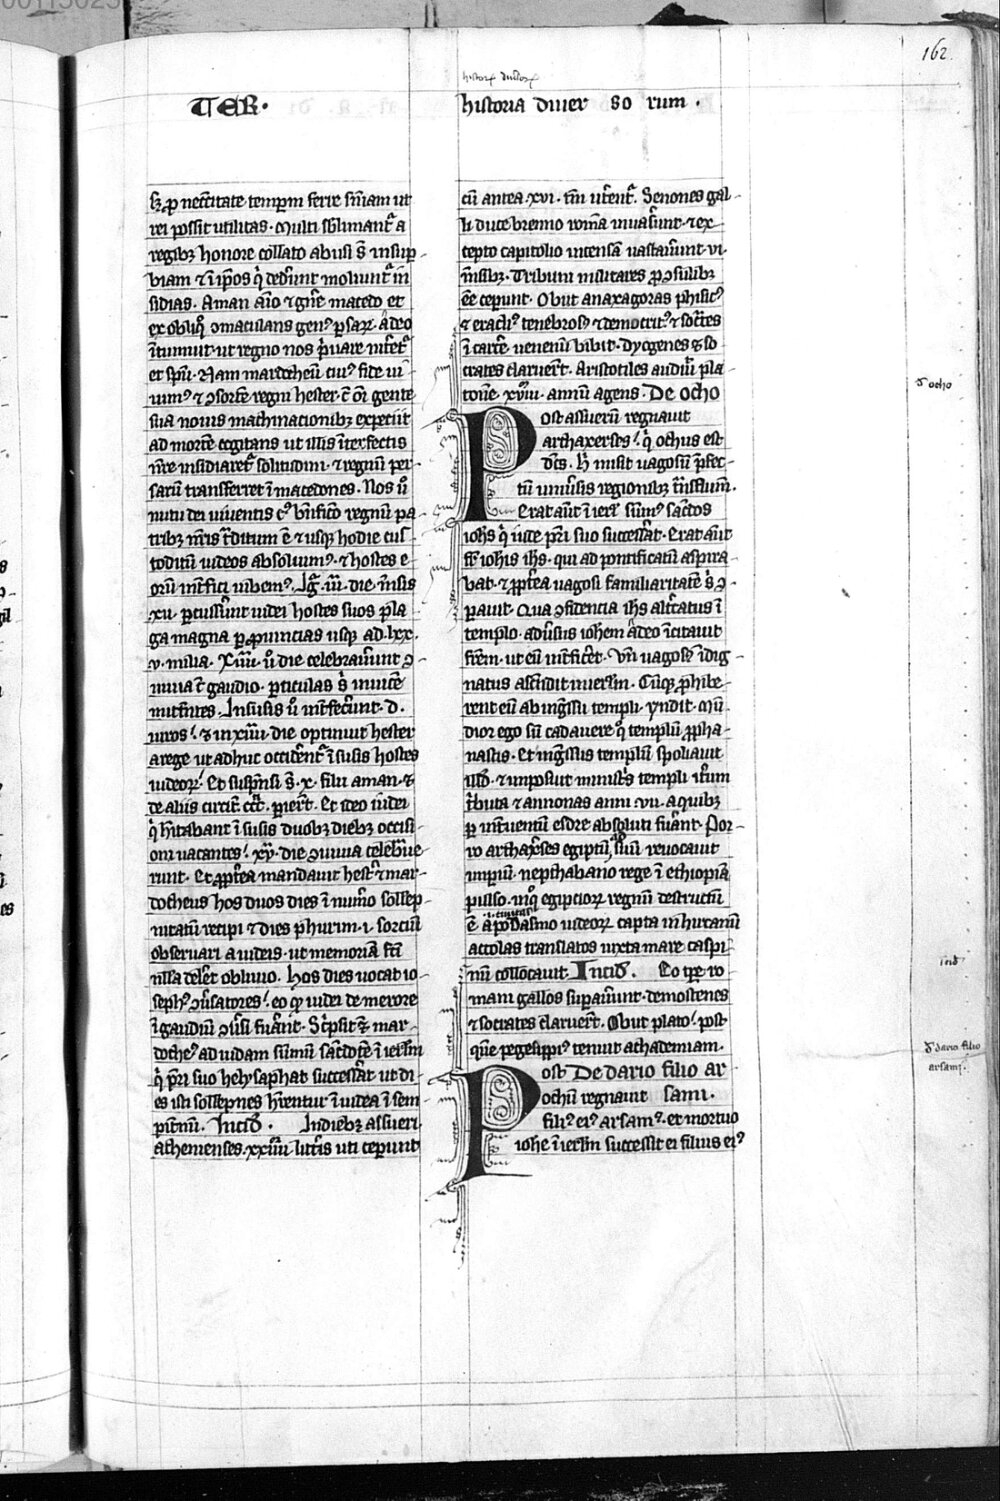 162.
TER.
historia diuersorum.
sʒ ꝓ neccitate tempꝝ ferre sn̄iam ut
rei possit utilitas. Multi sblimantᷣ a
regibꝫ honore collato abusi sꝰ in sup
biam ⁊ ī ip̄os q̇ dedᷣunt moliuntᷣ in
sidias. Aman aīo ⁊ gn̄te macedo et
ex obliq̊ ꝯmaculans genꝰ psaꝝ. adeo
ītumuit. ut regno nos p̱uare nitetᷣ
et sp̄u. Nam mardocheū
nimꝰ ⁊ ꝯsortē regni hester. c̄ oī gente
sua nouis machinacionibꝫ expetiit
ad mortē cogitans ut illis īterfectis
nr̄e insidiaretᷣ solitudini. ⁊ regnū per
sarū transferret ī macedones. Nos ū
nutu dei uiuentis cꝰ bn̄ficio regnū pa
tribꝫ nr̄is t̄ditum ē ⁊ usqꝫ hodie cus
toditū iudeos absoluimꝰ. ⁊ hostes e
oꝝ int̄fici iubemꝰ. Igᷣ .iii. die. m̄sis
.xii. ꝑcussᷣunt iudei hostes suos pla
ga magna ꝑ ꝓuincias usqꝫ ad .lxx.
.v. milia. Xiiii. ū die celebrauᷣunt ꝯ
uiuia c̄ gaudio. ꝑticulas s̄ inuicē
mittētes. In susis ū int̄fecᷣunt .d.
uiros. ⁊ in xiiii. die optinuit hester
a rege ut adhuc occidᷣentᷣ ī susis hostes
iudeoꝝ. Et suspēsi sꝰ .x. filii aman. ⁊
de aliis circit̄ ccc. pierᷣt. Et ideo iudei
q̇ hitabant ī susis duobꝫ diebꝫ occisi
oni uacantes. xv. die ꝯuiuia celebᷣue
runt. Et ꝓpt̄ea mandauit hestᷣ ⁊ mar
docheus hos duos dies ī numo sollep
nitatū recipi ⁊ dies phurim .i. sorciū
obseruari a iudeis. ut memoriā fc̄i
nulla delet̄ obliuio. Hos dies uocat io
sephꝰ ꝯsūatores. eo qꝫ iudei de merore
ī gaudiū ꝯuᷣsi fuᷣant. Scᷣpsit ⁊ mar
docheꝰ ad iudam sūmū sac̄dotē ī ierlm
q̇ pri suo helysaphat successᷣat ut di
es isti sollepnes hr̄entur ī iudea ī sem
pit̄nū. Incid̄. In diebꝫ assueri
athenienses .xxiiii. litt̄is uti ceperunt
cū antea .xvi. tm̄ ut̄entᷣ. Senones gal
li duce brenno romā inuasᷣunt. ⁊ ex
cepto capitolio incensā uastauᷣunt .vi.
m̄sibꝫ. Tribuni militares ꝓ ꝯsulibꝫ
eē ceperunt. Obiit anaxagoras phisicꝰ
⁊ eracliꝰ tenebrosꝰ ⁊ democritꝰ. ⁊ socᷣtes
ī carcᷣe uenenū bibit. Dyogenes ⁊ so
crates claruerᷣt. Aristotiles audiuᷣ pla
tonē .xviii. annū agens. De ocho
Post assuerū regnauit
arthaxerses. q̇ ochus est
dc̄s. h̄ misit uagosū p̄fec
tū uniuᷣsis regionibꝫ t̄nsfluui.
Erat aūt ī ierlm sūmꝰ sac̄dos
ioh̄s q̇ iude pri suo successᷣat. Erat aūt
fr̄ ioh̄is ih̄s. qui ad pontificatū aspira
bat. ⁊ ꝓpt̄ea uagosi familiaritatē s̄ ꝯ
parauit. Qua ꝯfidencia ih̄s alt̄catus ī
templo. aduᷣsus ioh̄em adeo īcitauit
fr̄em. ut eū int̄ficᷣet. Un̄ uagosꝰ īdig
natus ascēdit in ierlm. Cūqꝫ ꝓhibe
rent eū ab ingᷣssu templi. rn̄dit. Mū
dior ego sū cadauere qᷓ templū ꝓpha
nastis. Et ingᷣssus templū spoliauit
illd̄. ⁊ imposuit ministᷣs templi it̄um
tᷣbuta ⁊ annonas anni .vii. a quibꝫ
ꝑ int̄uentū esdre absoluti fuᷣant. Por
ro arthaxᷣses egiptū suū reuocauit
impiū. nepthabano rege ī ethiopiā
pulso. inqͦ egiptioꝝ regnū destructū
ē. .i. ciuitas Apodasmo iudeoꝝ capta in hircaniā
accolas translatos iuxta mare caspi
um collocauit. Incid̄. Eo tꝑe ro
mani gallos supauᷣunt. demostenes
⁊ socrates claruerᷣt. Obiit plato. post
quē pegesippiꝰ tenuit achademiam.
Post De dario filio ar
ochū regnauit sami.
filiꝰ eiꝰ arsamꝰ. et mortuo
ioh̄e ī ierlm successit ei filius eiꝰ
d̄ ocho
incid̄
d̄ dario filio
arsami.